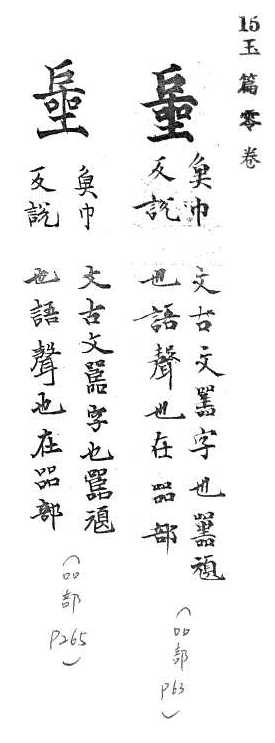 15玉篇零卷
臾巾
反説
文古文嚚字也嚚頑
也語聲也在㗊部
(㗊部 P63)
臾巾
反説
文古文嚚字也嚚頑
也語聲也在㗊部
(㗊部 P265)